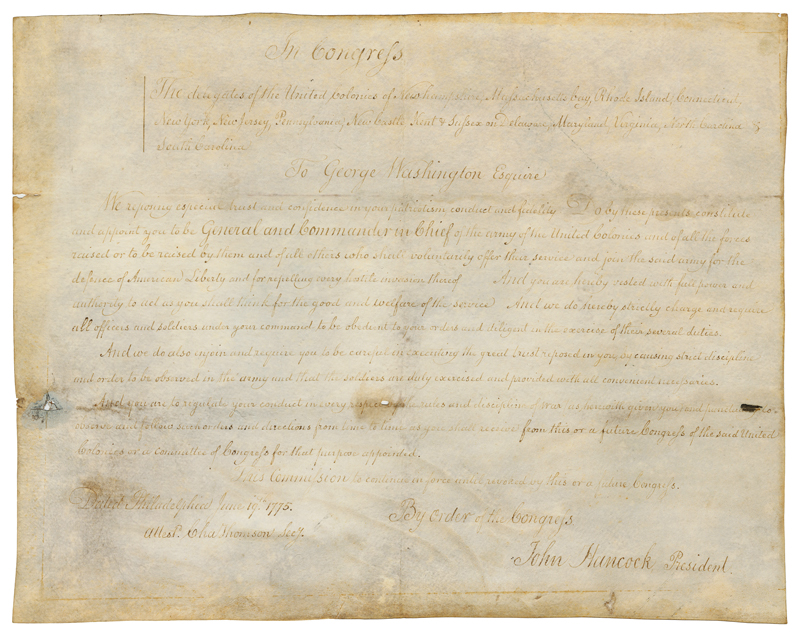 In Congress
The delegates of the United Colonies of New hampshire, Massachusetts bay, Rhode Island, Connecticut,
New York, New Jersey, Pennsylvania, New Castle Kent & Sussex on Delaware, Maryland, Virginia, North Carolina &
South Carolina
To George Washington Esquire
We reposing especial trust and confidence in your patriotism conduct and fidelity Do by these presents constitute
and appoint you to be General and Commander in Chief of the army of the United Colonies and of all the forces
raised or to be raised by them and of all others who shall voluntarily offer their service and join the said army for the
defence of American Liberty and for repelling every hostile invasion thereof And you are hereby vested with full power and
authority to act as you shall think for the good and welfare of the service And we do hereby strictly charge and require
all officers and soldiers under your command to be obedient to your orders and diligent in the exercise of their several duties.
And we do also injoin and require you to be careful in executing the great trust reposed in you, by causing strict discipline
and order to be observed in the army and that the soldiers are duly exercised and provided with all convenient necessaries.
And you are to regulate your conduct in every respect by the rules and discipline of war as herewith given you and punctually to
observe and follow such orders and directions from time to time as you shall receive from this or a future Congress of the said United
Colonies or a committee of Congress for that purpose appointed.
This Commission to continue in force until revoked by this or a future Congress.
Dated Philadelphia June 19th 1775.
By order of the Congress
Attest. Cha Thomson Secy.
John Hancock President.